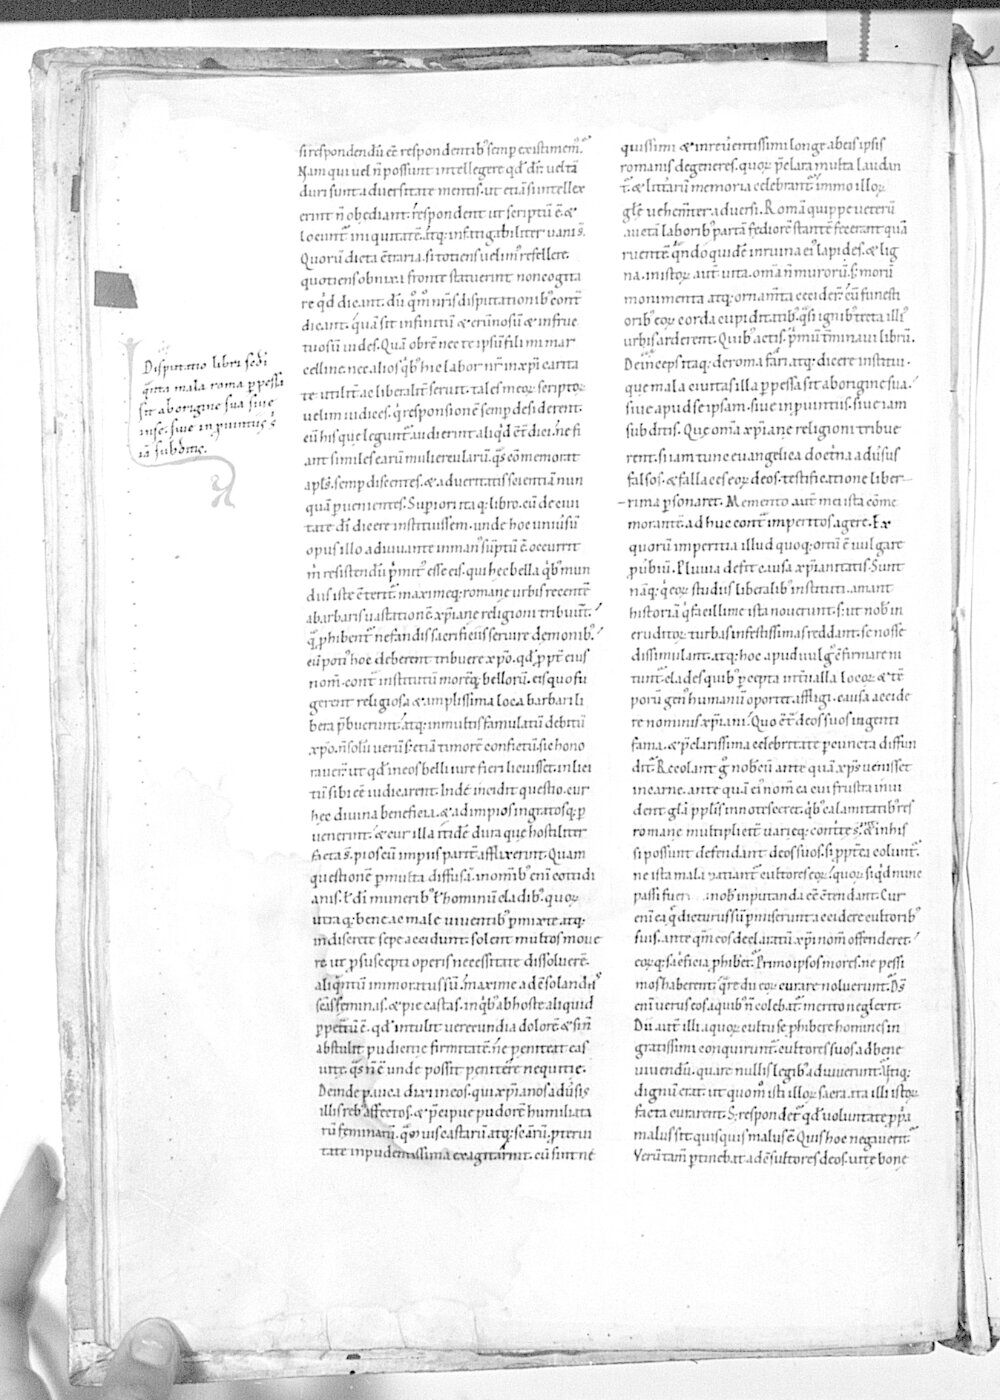 Disputatio libri sc̄di
q̄nta mala roma ꝑpessa
sit ab origine sua siue
in se. siue in ꝓuintiis
iā subditis.
si respondendū eē respondentib; semp existimem'.
Nam qui uel n̄ possunt intellegere qd̄ dr̄. uel tā
duri sunt aduersitate mentis. ut etiā si intellex
erint n̄ obediant. respondent ut scriptū ē. &
locunt̄ iniquitatē. atq; infatigabiliter uani s̄.
Quorū dicta cōtraria. si totiens uelim' refellere.
quotiens obnixa fronte statuerint non cogita
re qd̄ dicant. dū q̊m nr̄is disputationib; cont̄
dicant. quā sit infinitū & erūnosū & infruc
tuosū uides. Quā obrē nec te ipsū fili mi mar
celline. nec alios q̄b; hic labor nr̄ in xp̄i carita
te utilit̄ ac liberalit̄ seruit. tales meoꝝ scriptoꝝ
uelim iudices. q̄ responsionē semp desiderent.
cū his que legunt̄ audierint aliqd̄ cōt̄ dici. ne fi
ant similes earū muliercularū. q̄s cōmemorat
apl̄s. semp discentes. & ad ueritatis scientiā nun
quā ꝑuenientes. Supiori itaq; libro. cū de ciui
tate dī dicere instituissem. unde hoc uniuersū
opus illo adiuuante in man' sūptū ē. occurrit
m̄ resistendū p̄mit' esse eis. qui hec bella q̄b; mun
dus iste cōterit̄. maximeq; romane urbis recentē
a barbaris uastationē xp̄iane religioni tribuunt.
q̄ ꝓhibent̄ nefandis sacrificiis seruire demonib;.
cū poti' hoc deberent tribuere xp̄o. qd̄ ꝓpt̄ eius
nom̄. cont̄ institutū morēq; bellorū. eis quo fu
gerent religiosa & amplissima loca barbari li
bera p̄buerunt. atq; in multis famulatū debitū
xp̄o. n̄ solū uerū & etiā timore confictū. sic hono
rauer̄. ut qd̄ in eos belli iure fieri licuisset. inlici
tū sibi eē iudicarent. Inde incidit questio. cur
hec diuina beneficia. & ad impios ingratosq; ꝑ
uenerint. & cur illa itidē dura que hostiliter
facta s̄. pios cū impiis parit̄ afflixerint. Quam
questionē ꝑ multa diffusā. in om̄ib; enī cotidi
anis. ł dī munerib; ł hominū cladib;. quoꝝ
utraq; bene ac male uiuentib; ꝑmixte. atq;
indiscrete sepe accidunt. solent multos moue
re ut ꝓ suscepti operis necessitate dissoluerē.
aliq̄ntū immoratus sū. maxime ad cōsolandas
scās feminas. & pie castas. in q̄b; ab hoste aliquid
ꝑpetratū ē. qd̄ intulit uerecundie dolorē & si n̄
abstulit pudicitie firmitatē. ne peniteat eas
uite. q̄s n̄ ē unde possit penitere nequitie.
Deinde pauca dixi in eos. qui xp̄ianos aduīsis
illis reb; affectos. & p̄cipue pudorē humiliata
rū feminarū. q̊muis castarū. atq; scārū. ꝓterui
tate inpudentissima exagitant. cū sint ne
quissimi & inreuerentissimi longe ab eis ipsis
romanis degeneres. quoꝝ p̄clara multa laudan
t̄. & litterarū memoria celebrant̄. immo illoꝝ
gl̄e uehemt̄er aduersi. Romā quippe ueterū
auctā laborib; partā fediorē stantē fecerant quā
ruentē. Q̄ndo quidē in ruina ei' lapides. & lig
na. in istoꝝ aut̄ uita. om̄ia n̄ muroꝝ. s; morū
monimenta atq; ornam̄ta cecider̄. cū funesti
orib; eoꝝ corda cupiditatib; q̄ ignib; tecta illi'
urbis arderent. Quib; actis. p̄mū t̄minaui librū.
Deinceps itaq; de roma fari. atq; dicere institui.
que mala ciuitas illa ꝑpessa sit ab origine sua.
siue apud se ipsam. siue in ꝓuintiis. siue iam
subditis. Que om̄ia xp̄iane religioni tribue
rent. si iam tunc euangelica doct̄na aduīsus
falsos. & fallaces eoꝝ deos. testificatione liber
rima ꝑsonaret. Memento aut̄ me ista cōme
morantē. adhuc cont̄ imperitos agere. Ex
quorū imperitia illud quoq; ortū ē uulgare
ꝓuerbiū. Pluuia defit causa xp̄ianitatis. Sunt
nāq; q̄ eoꝝ studiis liberalib; instituti. amant
historiā q̄ facillime ista nouerunt. s; ut nob̄ in
eruditoꝝ turbas infestissimas reddant. se nosse
dissimulant. atq; hoc apud uulg' cōfirmare ni
tunt̄. clades quib; ꝑ certa int̄ualla locoꝝ & tē
porū gen' humanū oportet affligi. causa accide
re nominis xp̄iani. Quo cōt̄ deos suos ingenti
fama. & p̄clarissima celebritate ꝑ cuncta diffun
dit̄. Recolant g̊ nob̄cū ante quā xp̄s uenisset
in carne. ante quā ei' nom̄ ea cui frustra inui
dent gl̄a ppl̄is innotesceret. q̄b; calamitatib; res
romane multiplicit̄ uarieq; contrite s̄. & in his
si possunt defendant deos suos. si ꝓpt̄ea colunt̄.
ne ista mala patiant̄ cultores eoꝝ. quoꝝ si qd̄ nunc
passi fuerint nob̄ inputanda eē cōtendant. Cur
enī ea q̄ dicturus sū ꝑmiserunt accidere cultorib;
suis. ante qm̄ eos declaratū xp̄i nom̄ offenderet.
eoꝝq; sac̄ficia ꝓhibet̄. Primo ipsos mores. ne pessi
mos haberent. q̄re dii eoꝝ curare noluerunt. D̄s
enī uerus eos. a quib; n̄ colebat̄. merito neglexit.
Dii aut̄ illi. a quoꝝ cultu se ꝓhibere homines in
gratissimi conquirunt̄. cultores suos ad bene
uiuendū. quare nullis legib; adiuuerunt. Utiq;
dignū erat. ut quom̊ isti illoꝝ sacra. ita illi istoꝝ
facta curarent. S; respondet̄ qd̄ uoluntate ꝓpa
malus sit quisquis malus ē. Quis hoc negauerit.
Verū tam̄ ꝑtinebat ad cōsultores deos. uite bone